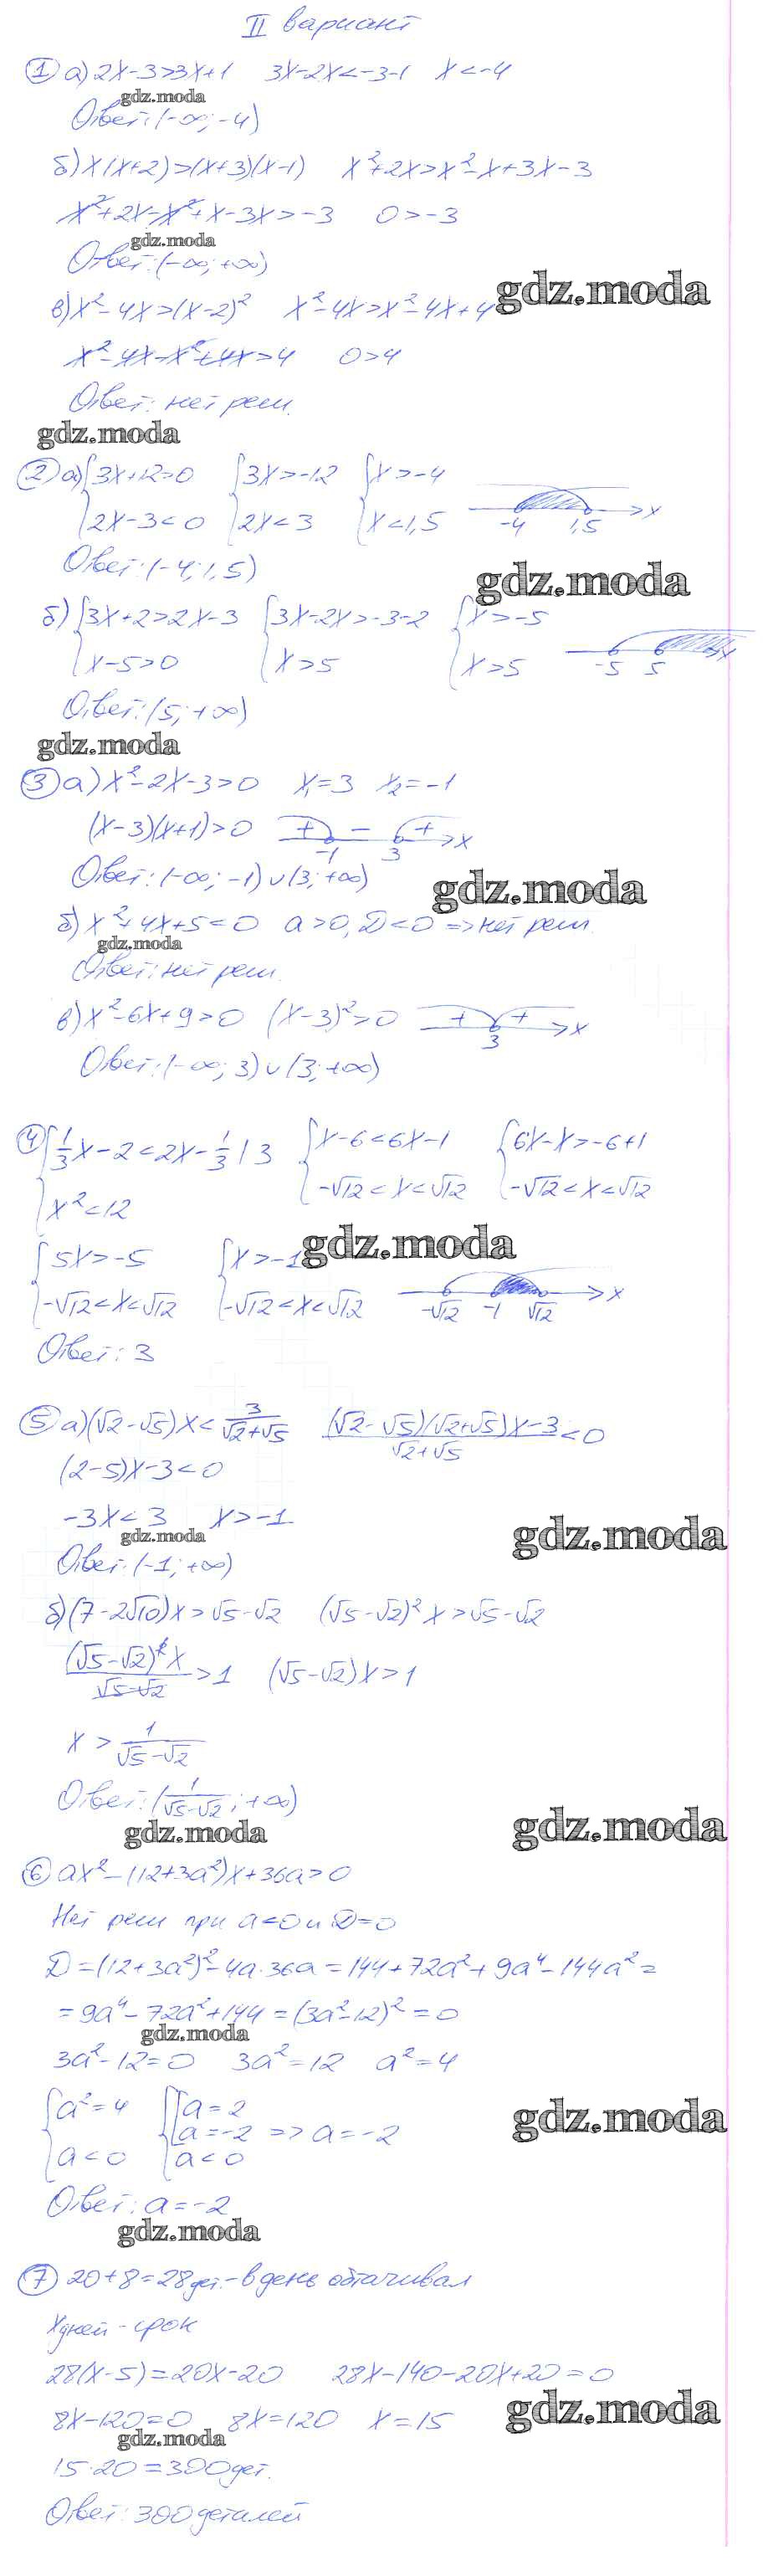 II вариант
① а) 2x-3>3x+1 3x-2x<-3-1 x<-4
gdz.moda
Ответ: (-∞; -4)
б) x(x+2)>(x+3)(x-1) x²+2x>x²-x+3x-3
x²+2x-x²+x-3x>-3 0>-3
gdz.moda
Ответ: (-∞; +∞)
gdz.moda
в) x²-4x>(x-2)² x²-4x>x²-4x+4
x²-4x-x²+4x>4 0>4
Ответ: нет реш.
gdz.moda
② а) {3x+12>0 {3x>-12 {x>-4
{2x-3<0 {2x<3 {x<1,5 -4 1,5 x
Ответ: (-4; 1,5)
gdz.moda
б) {3x+2>2x-3 {3x-2x>-3-2 {x>-5
{x-5>0 {x>5 {x>5 -5 5 x
Ответ: (5; +∞)
gdz.moda
③ а) x²-2x-3>0 x₁=3 x₂=-1
(x-3)(x+1)>0 + - + -1 3 x
Ответ: (-∞; -1)∪(3; +∞)
gdz.moda
б) x²+4x+5<0 a>0, D<0 => нет реш.
gdz.moda
Ответ: нет реш.
в) x²-6x+9>0 (x-3)²>0 + + 3 x
Ответ: (-∞; 3)∪(3; +∞)
④ {1/3x-2<2x-1/3 |3 {x-6<6x-1 {6x-x>-6+1
{x²<12 {-√12<x<√12 {-√12<x<√12
gdz.moda
{5x>-5 {x>-1
{-√12<x<√12 {-√12<x<√12 -√12 -1 √12 x
Ответ: 3
⑤ а) (√2-√5)x<3/(√2+√5) ((√2-√5)(√2+√5)x-3)/(√2+√5)<0
(2-5)x-3<0
-3x<3 x>-1
gdz.moda
gdz.moda
Ответ: (-1; +∞)
б) (7-2√10)x>√5-√2 (√5-√2)²x>√5-√2
(√5-√2)²x/(√5-√2)>1 (√5-√2)x>1
x>1/(√5-√2)
Ответ: (1/(√5-√2); +∞)
gdz.moda
gdz.moda
⑥ ax²-(12+3a²)x+36a>0
Нет реш при a<0 и D=0
D=(12+3a²)²-4a·36a=144+72a²+9a⁴-144a²=
=9a⁴-72a²+144=(3a²-12)²=0
gdz.moda
3a²-12=0 3a²=12 a²=4
{a²=4 {[a=2
[a=-2 => a=-2
{a<0 {a<0
gdz.moda
Ответ: a=-2
gdz.moda
⑦ 20+8=28 дет. - в день обтачивал
x дней - срок
28(x-5)=20x-20 28x-140-20x+20=0
8x-120=0 8x=120 x=15
gdz.moda
gdz.moda
15·20=300 дет.
Ответ: 300 деталей